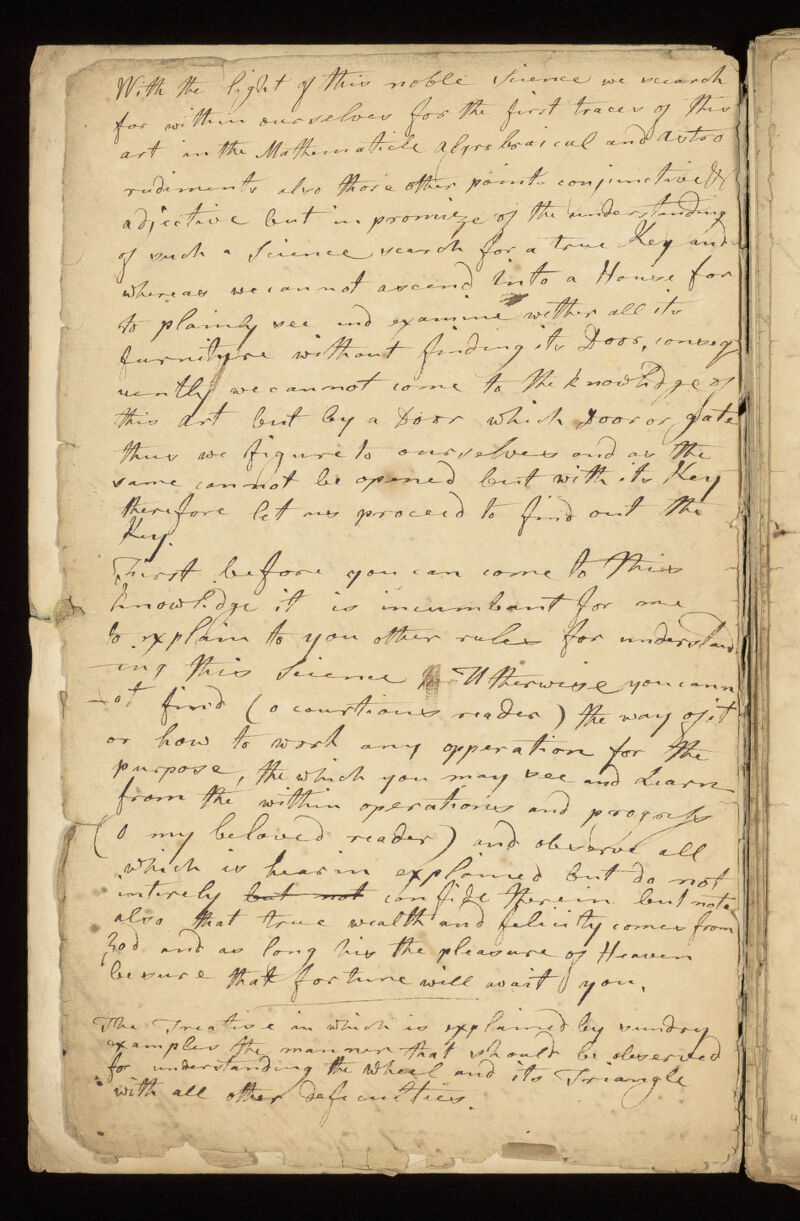 With the light of this noble Science we search
for within ourselves for the first traces of this
art in the Mathematicle algebraical and astro
rudiments also those other point conjunctive &
adjective but in promize of the understanding
of such a Science search for a true Key and
whereas we cannot ascend into a House for
to plainly see and examine wether all its
furnityre without finding its Door, conseq
uently we cannot come to the knowlidge of
this art but by a Door which Door or gate
thus we figure to ourselves and as the
same cannot be opened but with its Key
therefore let us proceed to find out the
Key.
First before you can come to this
knowlidge it is incumbant for me
to explain to you other rules for understand
ing this Science Utherwise you cann
-ot find (o courtious reader) the way of it
or how to work any opperation for the
purpose, the which you may see and Learn
from the within operations and progress
(o my beloved reader) and observe all
which is hearin explained but do not
intirely but not confide therein but note
also that true wealth and felicity comes from
God and as long his the pleasure of Heaven
be sure that fortune will await you.
The Treatise in which is explained by sundry
examples the manner that should be observed
for understanding the wheel and its Triangle
with all other deficulties.